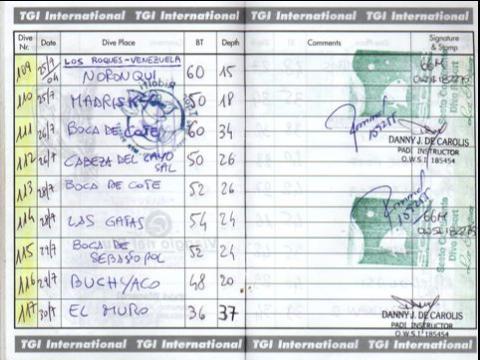 TGI International TGI International TGI International TGI International TGI International TGI International
Dive Nr. Date Dive Place BT Depth Comments Signature & Stamp
LOS ROQUES-VENEZUELA
109 25/7 04 NORONQUI 60 15
110 25/7 50 18
111 26/7 BOCA DE COTE 60 34
112 26/7 CABEZA DEL CAYO SAL 50 26
113 28/7 BOCA DE COTE 52 26
114 28/7 LAS GATAS 54 24
115 29/7 BOCA DE SEBASTOPOL 52 24
116 29/7 BUCHYACO 48 20
117 30/7 EL MURO 36 37
DANNY J. DE CAROLIS
PADI INSTRUCTOR
O.W.S.I. 185454
DANNY J. DE CAROLIS
PADI INSTRUCTOR
O.W.S.I. 185454
TGI International TGI International TGI International TGI International TGI International TGI International